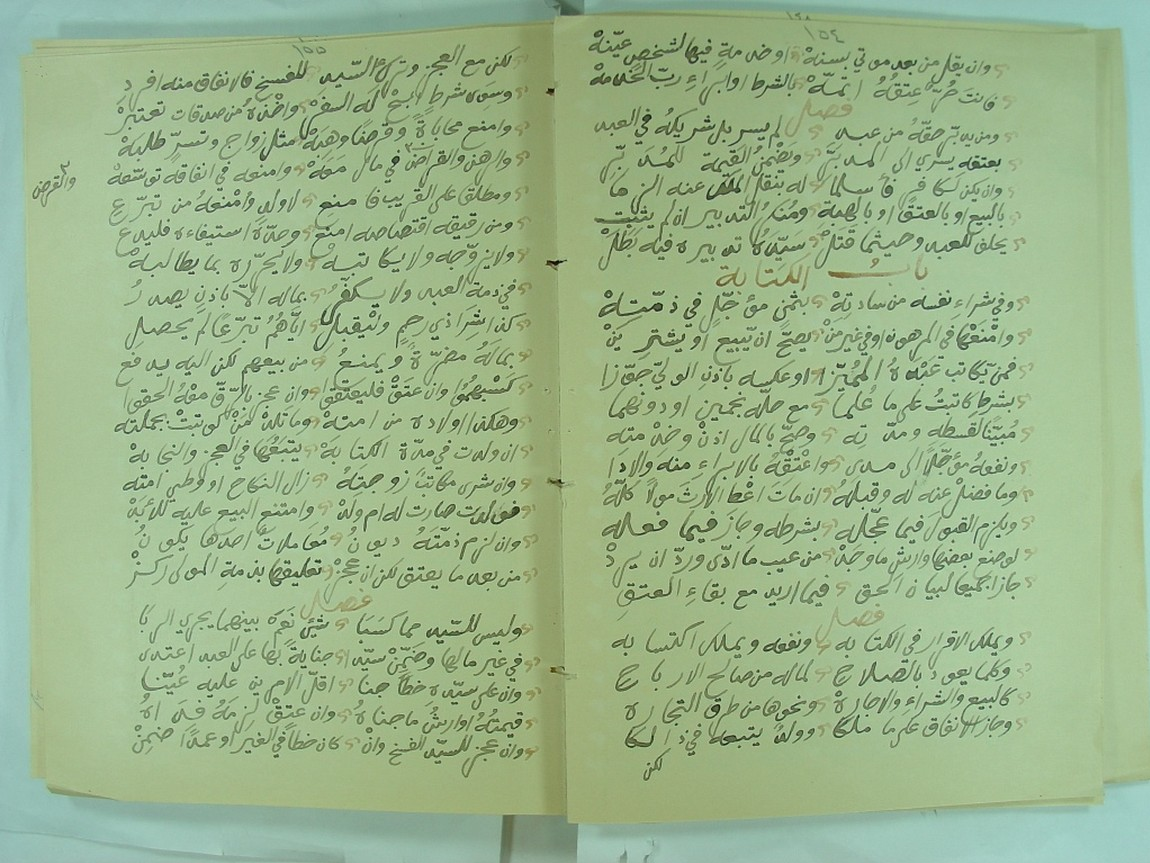 ١٥٤
وان يقل من بعد موتي بسنة او خدمة فيها لشخص عينه
فانت حر عتقه اتمه بالشرط او ابراء رب الخدمه
فصل
ومن يدبر حقه من عبد لم يسر بل شريكه في العبد
بعتقه يسري الى المدبر ويضمن القيمة للمدبر
وان يكن لكافر فأسلما له بنقل الملك عنه الزما
بالبيع او بالعتق او بالهبة ومنكر التدبير ان لم يثبت
يحلف للعبد وحيثما قتل سيده تدبيره فيه بطل
باب الكتابة
وفي شراء نفسه من سادته بثمن مؤجل في ذمته
وامنعها في المرهون او في غير من يصح ان يبيع او يشترين
فمن يكاتب عبده المميزا او عكسه باذن الولي جوزا
بشرط كاتبت على ما علما مع حله نجمين او دونهما
مبينا لقسطه ومدته وصح بالمال اذن وخدمته
ونفعه مؤجلا الى مدى واعتقه بالابراء منه والادا
وما فضل عنه له وقبله ان مات اعط الارث مولا كله
ويلزم القبول فيما عجله بشرطه وجاز فيما فعله
لو ضع بعضها وارش ما وجد من عيب ما ادى ورد ان يرد
جاز لبيان الحق فيما اريد مع بقاء العتق
فصل
ويملك الاقرار في الكتابه ونفعه ويملك اكتسابه
وكلما يعود بالصلاح لماله من صالح الارباح
كالبيع والشراء والاجاره ونحوها من طرق التجاره
وجاز الانفاق على ما ملكا وولد يتبعه في ذالكا
لكن
١٥٥
لكن مع العجز وترك السيد للفسخ فالانفاق منه افرد
وسوى شرط ابح له السفر واخذه من صدقات تعتبر
وامنع محاباة وقرضا وهبه مثل زواج وتسر طلبه
والرهن والقراض في مال معه وامنعه في انفاقه توسعه
والقرض
ومطلق على القريب فامنع لاولد وامنعه من تبرع
ومن رقيقه اقتصاصه امنع وحده استيفاءه فليدع
ولا يزوجه ولا يكاتبه ولا يحرره بما يطالبه
في ذمة العبد ولا يكفر بماله الا باذن يصدر
كذا شراذي رحم وليقبل اياهم تبرعا لم يحصل
بماله مضرة ويمنع من بيعهم لكن اليه يدفع
كسبهموا وان عتق فليعتقوا وان عجز بالرق معه الحقوا
وهكذا اولاده من امته وما تلد من كوتبت بجملته
ان ولدت في مدة الكتابه يتبعها في العجز والنجابه
وان شرى مكاتب زوجته زال النكاح او وطي امته
فولدت صارت له ام ولد وامتنع البيع عليه للأبد
وان لزم ذمته ديون معاملات احدها يكون
من بعد ما يعتق لكن ان عجز تعليقها بذمة المولى ركز
فصل
وليس للسيد مما كسبا شيئ نعم بينهما يجري الربا
في غير مالها وضمن سيدا جناية بها على العبد اعتدى
وان على سيده خطأ جنا اقل الامرين عليه عينا
قيمته او ارش ما جناه وان عتق لزمه فداه
وان عجز للسيد الفسخ وان كان خطأ في الغير او عمدا ضمن